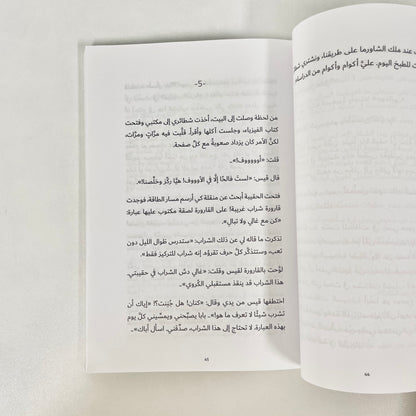 عند ملك الشاورما على طريقنا، ونشتري
للطبخ اليوم. عليَّ أكوام وأكوام من الدراسة
44
-5-
من لحظة وصلت إلى البيت، أخذت شطائري إلى مكتبي وفتحت
كتاب الفيزياء، وجلست أكلها وأقرأ. قلّبت فيه مرّاتٍ ومرّات،
لكنَّ الأمر كان يزداد صعوبةً مع كلّ صفحة.
قلت: «أوووووف!».
قال قيس: «لستُ فالحًا إلّا في الأوووف! هيّا ركّز وخلّصنا!».
فتحت الحقيبة أبحث عن منقلة كي أرسم مسار الطاقة، فوجدت
قارورة شراب غريبة! على القارورة لصقة مكتوب عليها عبارة:
«كن مع غالي ولا تبالِ».
تذكرت ما قاله لي عن ذلك الشراب: «ستدرس طوال الليل دون
تعب، وستتذكّر كلّ حرف تقرؤه. إنه شراب للتركيز فقط».
لوّحت بالقارورة لقيس وقلت: «غالي دسَّ الشراب في حقيبتي.
هذا الشراب قد ينقذ مستقبلي الكُروي».
اختطفها قيس من يدي وقال: «كنان! هل جُننت؟! إياك أن
تشرب شيئًا لا تعرف ما هو! .. بابا يصبّحني ويمسّيني كلّ يوم
بهذه العبارة. لا تحتاج إلى هذا الشراب، صدِّقني. اسأل أباك».
45